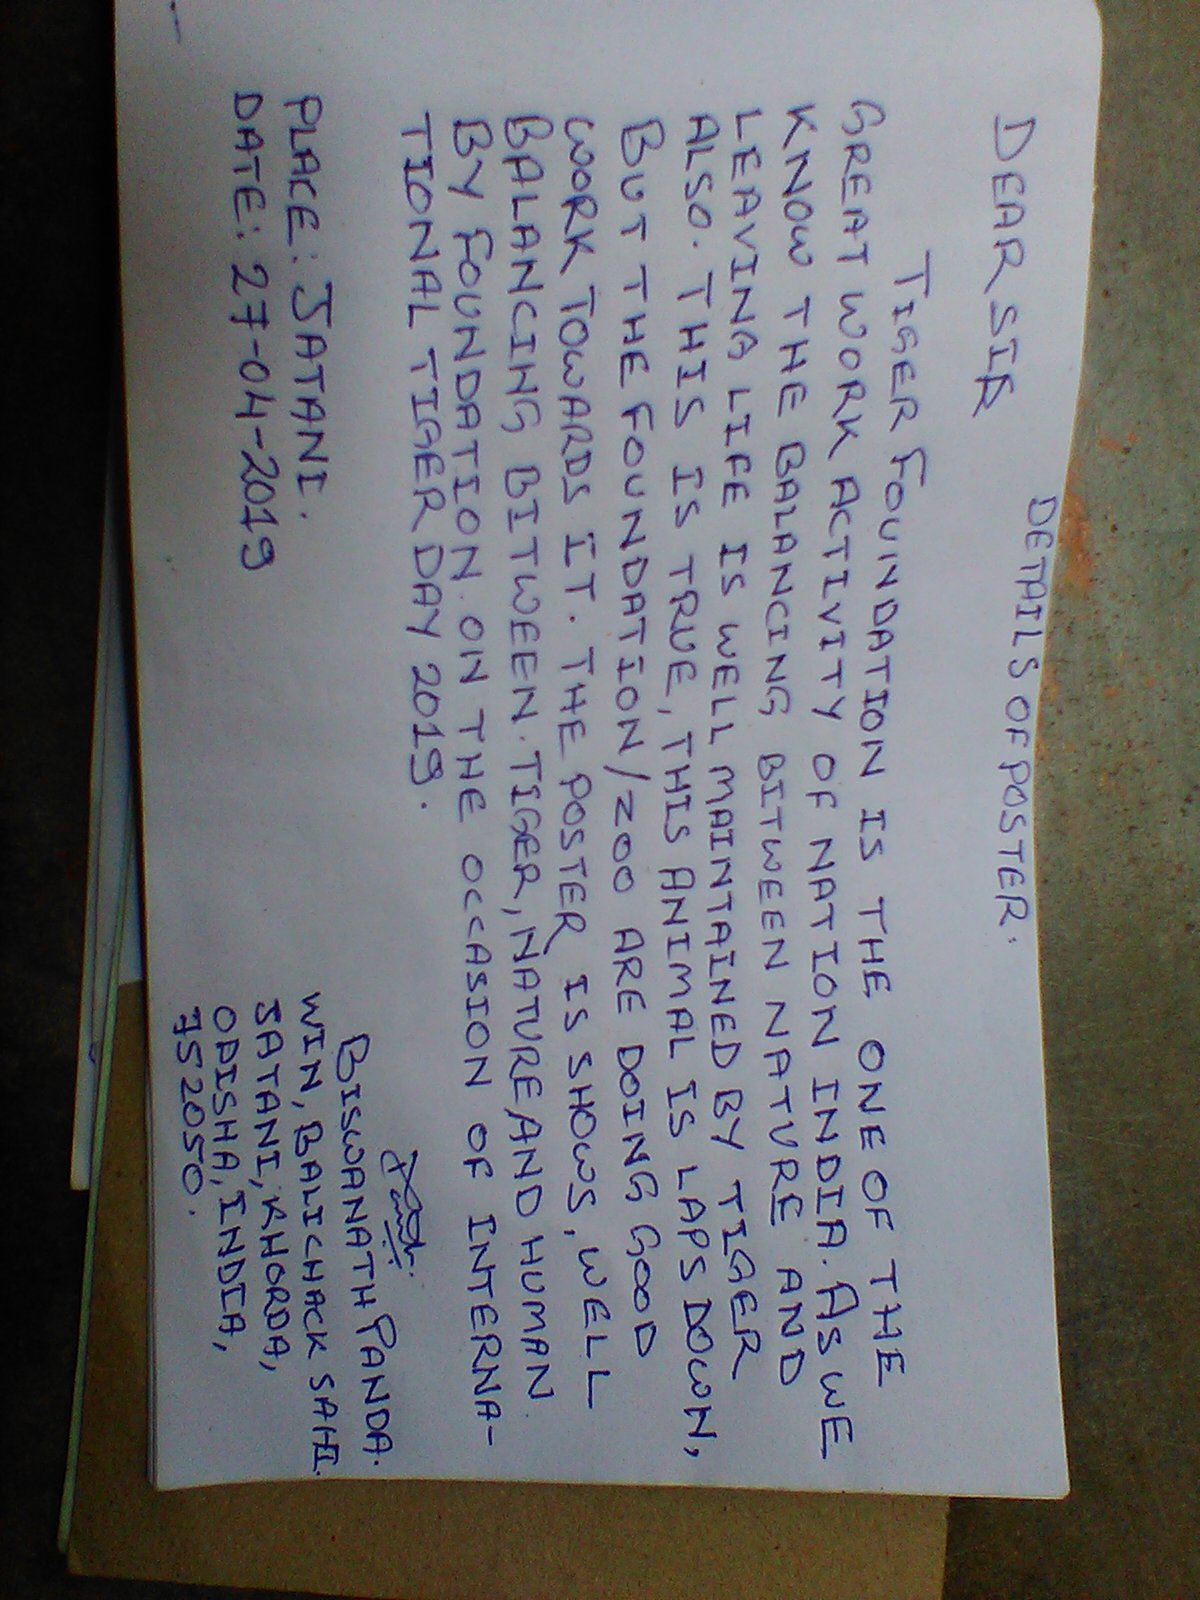 DETAILS OF POSTER.
DEAR SIR
TIGER FOUNDATION IS THE ONE OF THE
GREAT WORK ACTIVITY OF NATION INDIA. AS WE
KNOW THE BALANCING BITWEEN NATURE AND
LEAVING LIFE IS WELL MAINTAINED BY TIGER
ALSO. THIS IS TRUE, THIS ANIMAL IS LAPS DOWN,
BUT THE FOUNDATION/ZOO ARE DOING GOOD
WORK TOWARDS IT. THE POSTER IS SHOWS, WELL
BALANCING BITWEEN TIGER, NATURE AND HUMAN
BY FOUNDATION ON THE OCCASION OF INTERNA-
TIONAL TIGER DAY 2019.
BISWANATH PANDA.
PLACE: JATANI.
WIN, BALICHACK SAHI.
DATE: 27-04-2019
JATANI, KHORDA,
ODISHA, INDIA,
752050.